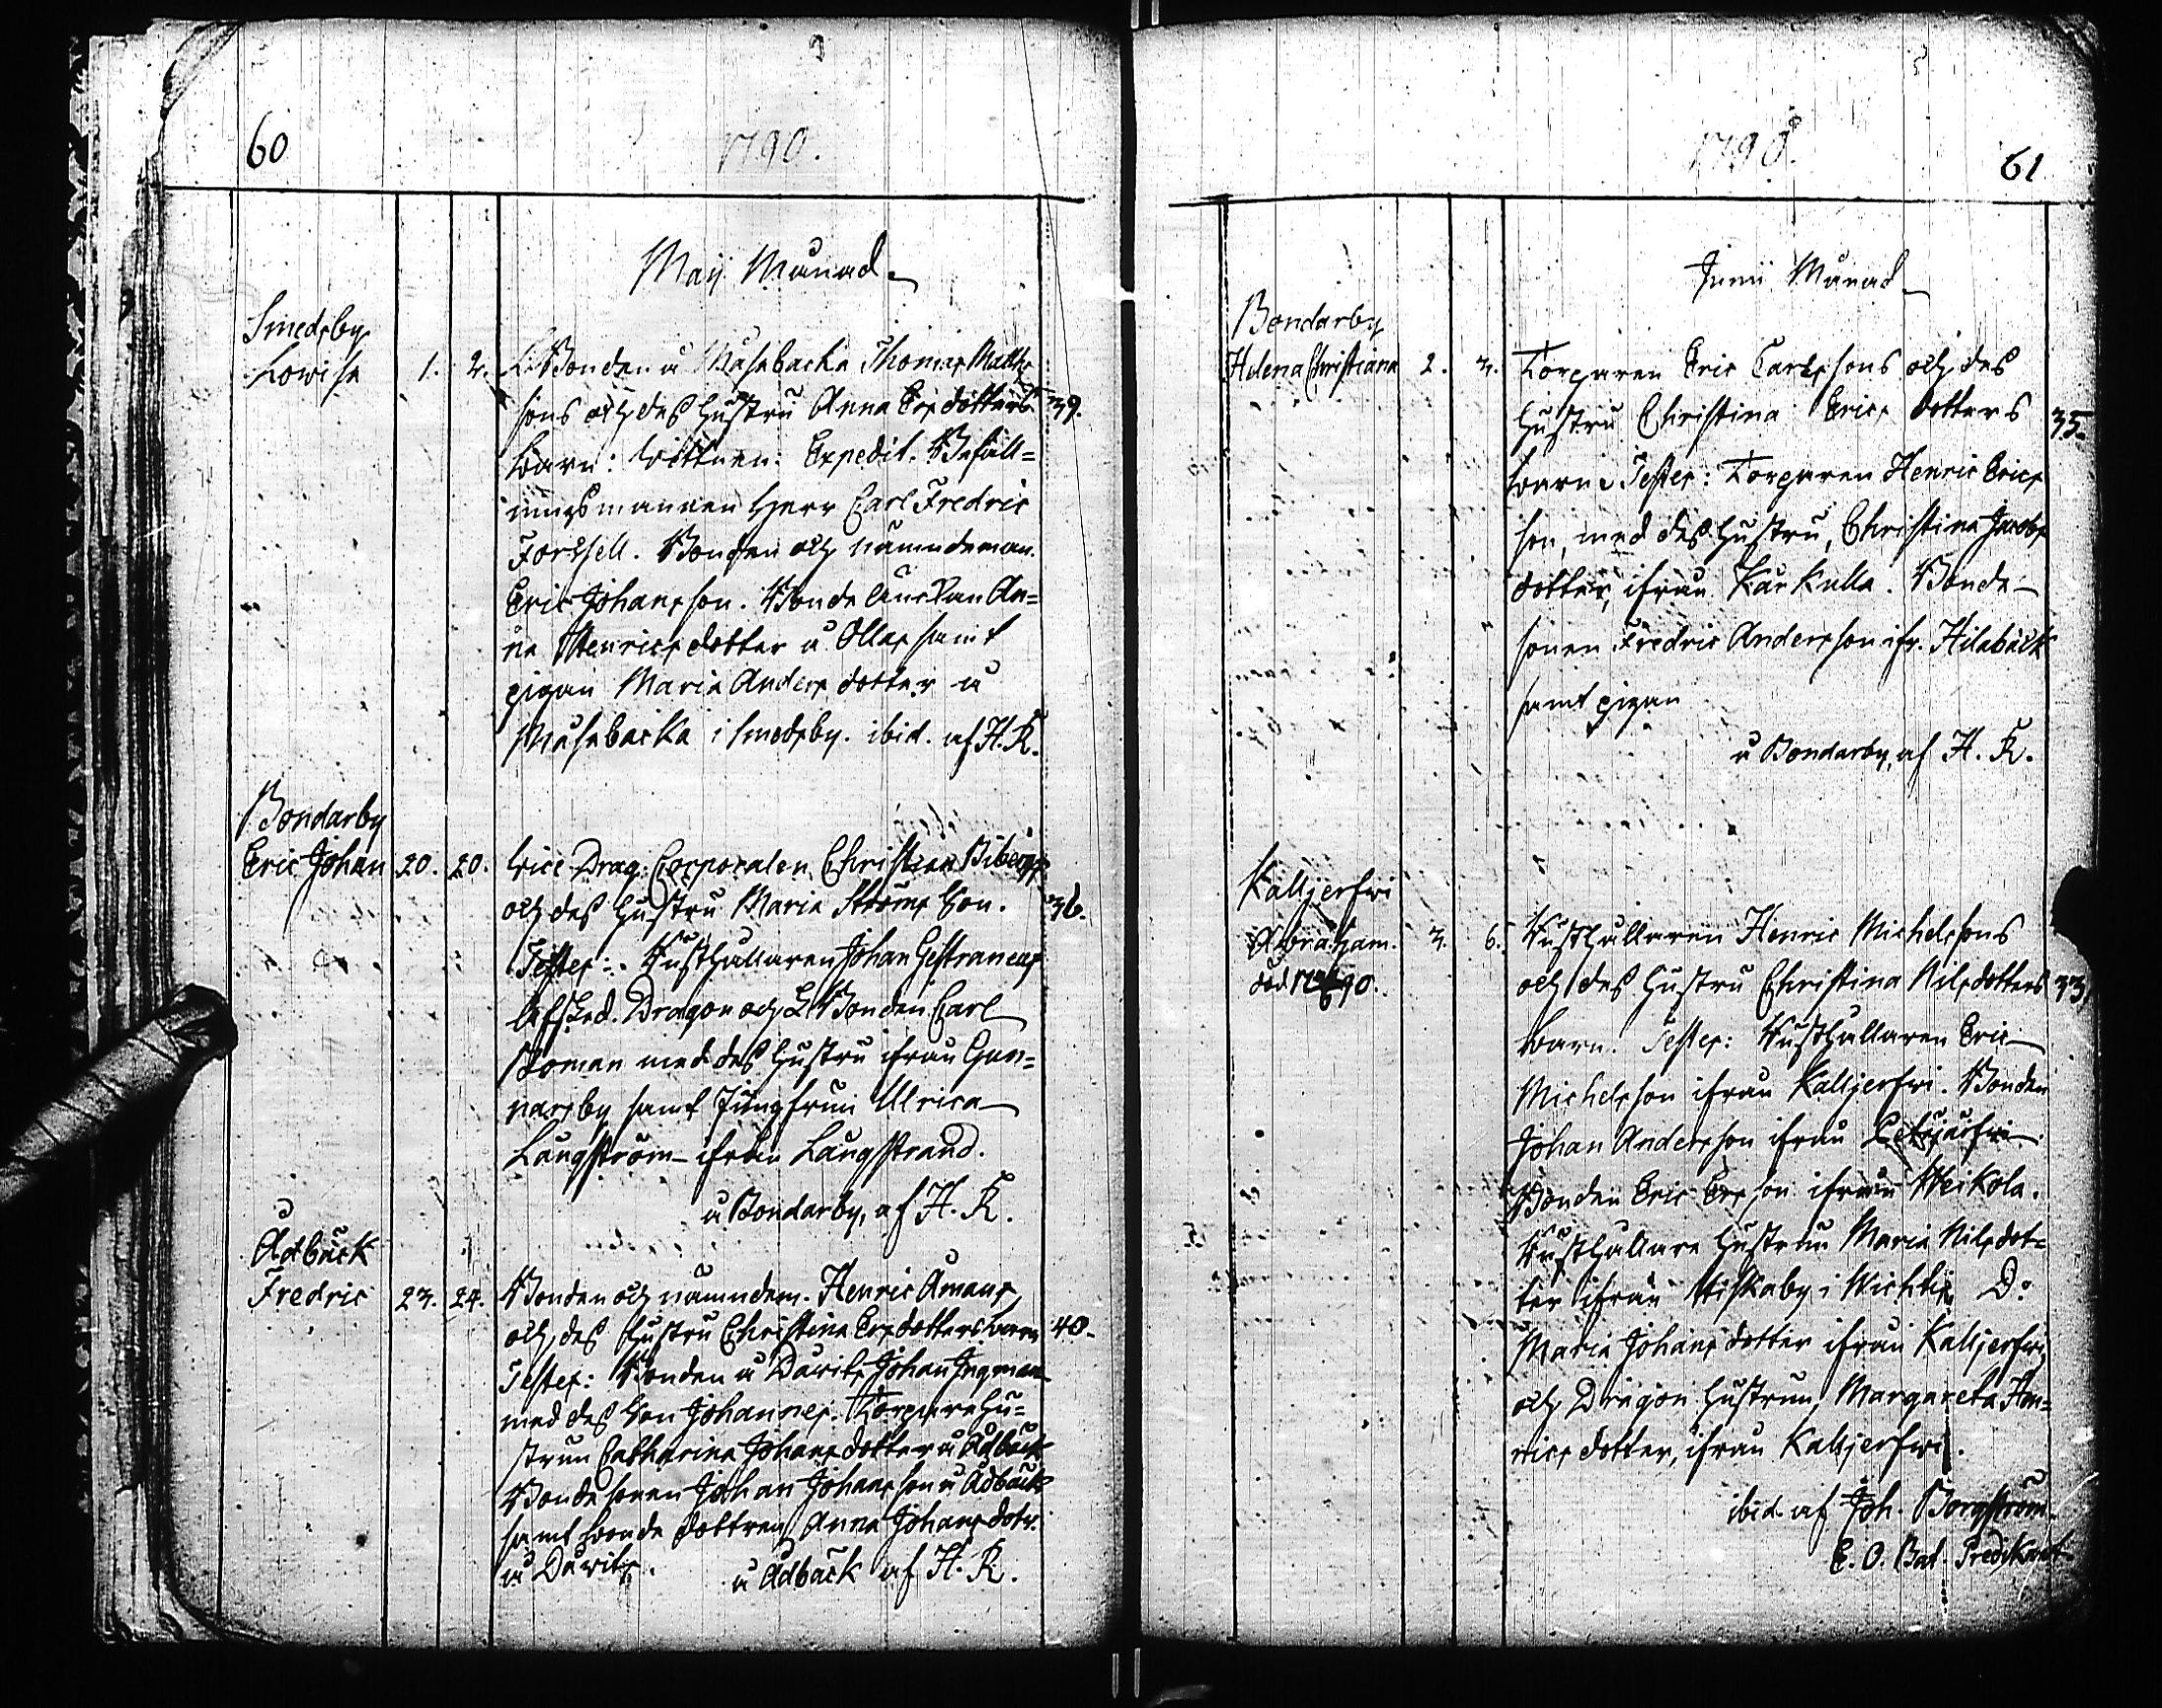 60
1790.
Maij Månad
Smedsby
Lowisa 1. 2. Bonden å Måsabacka Thomas Matts
sons och des hustru Anna Ersdotters 39.
barn: wittnen: Expedit. Befall=
ningsmannen Herr Carl Fredric
Forssell. Bonden och nämndeman
Eric Johansson. Bonde Enckan An=
na Henricsdotter å Ollas samt
pigan Maria Andersdotter å
Måsabacka i Smedsby. ibid. af H. K.
Bondarby
Eric Johan 20. 20. Vice Drag: Corporalen Christian
och des hustru Maria Ströms Son. 36.
Testes: Rusthållaren Johan
Afsked. Dragon och Bonden Carl
Boman med des hustru ifrån Gun=
narsby samt Jungfrun Ulrica
Långström ifrån Långstrand.
å Bondarby, af H. K.
Ådbäck
Fredric 23. 24. Bonden och nämndem. Henric Åmans
och des hustru Christina Ersdotters barn 40.
Testes: Bonden å Dawits Johan Ingman
med des Son Johannes. Torpare hu=
strun Catharina Johansdotter å Ådbäck
Bondesonen Johan Johansson å Ådbäck
samt bonde dottren Anna Johansdotr.
å Dawits. å Ådbäck af H. K.
1790.
61
Junii Månad
Bondarby
Helena Christiana 2. 3. Torparen Eric Carlssons och des
hustru Christina Erics dotters 35.
barn. Testes: Torparen Henric Erics
son, med des hustru, Christina Jacobs
dotter, ifrån Karkulla. Bonde
sonen Fredric Andersson ifr. Hilabäck
samt pigan
å Bondarby, af H. K.
Kalljerfwi
Abraham. 3. 6. Rusthållaren Henric Michelssons
död 90. och des hustru Christina Nilsdotters 33.
barn. Testes: Rusthållaren Eric
Michelsson ifrån Kalljerfwi. Bonden
Johan Andersson ifrån
Bonden Eric Ersson ifrån Weikola.
Rusthållare hustrun Maria Nilsdot=
ter ifrån Hiskaby i Wichtis Do
Maria Johansdotter ifrån Kalljerfwi,
och Dragon hustrun Margareta Hen=
rics dotter, ifrån Kalljerfwi.
ibid. af Joh. Borgström.
E. O. Bat. Predikant